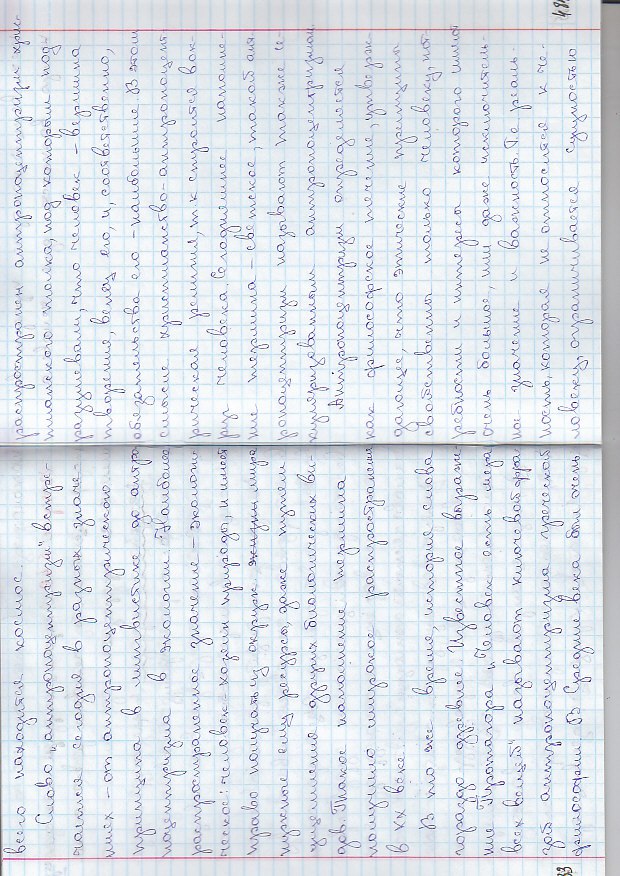 всего находится космос.
Слово „антропоцентризм" встре-
чается сегодня в разных значе-
ниях - от антропоцентрического
принципа в лингвистике до антро
поцентризма в экологии. Наиболее
распространенное значение - экологи
ческое: человек - хозяин природы, и имеет
право получать из окруж. жизни мира
нужные ему ресурсы, даже путем
уничтожения других биологических ви-
дов. Такое наполнение термина
получило широкое распространение
в XX веке.
В то же время, история слова
гораздо древнее. Известное выраже-
ние Протагора „Человек есть мера
всех вещей" называют ключевой фра
зой антропоцентризма греческой
философии. В Средние века был очень
распространен антропоцентризм хрис-
тианского толка, под которым под-
разумевали, что человек - вершина
творения, венец его, и, соответственно,
обязательства его - наибольшие. В этом
смысле христианство - антропоцент-
рическая религия, т.к строится вок-
руг человека. Сегодняшнее наполне-
ние термина - светское, такой ант
ропоцентризм называют также се-
куляризованным антропоцентризмом.
Антропоцентризм определяется
как философское течение, утверж-
дающее, что этические принципы
свойственны только человеку, пот
ребности и интересы которого имеют
очень большое, или даже исключитель-
ное значение и важность. Те реаль-
ность, которая не относится к че-
ловеку, ограничивается сущностью
33